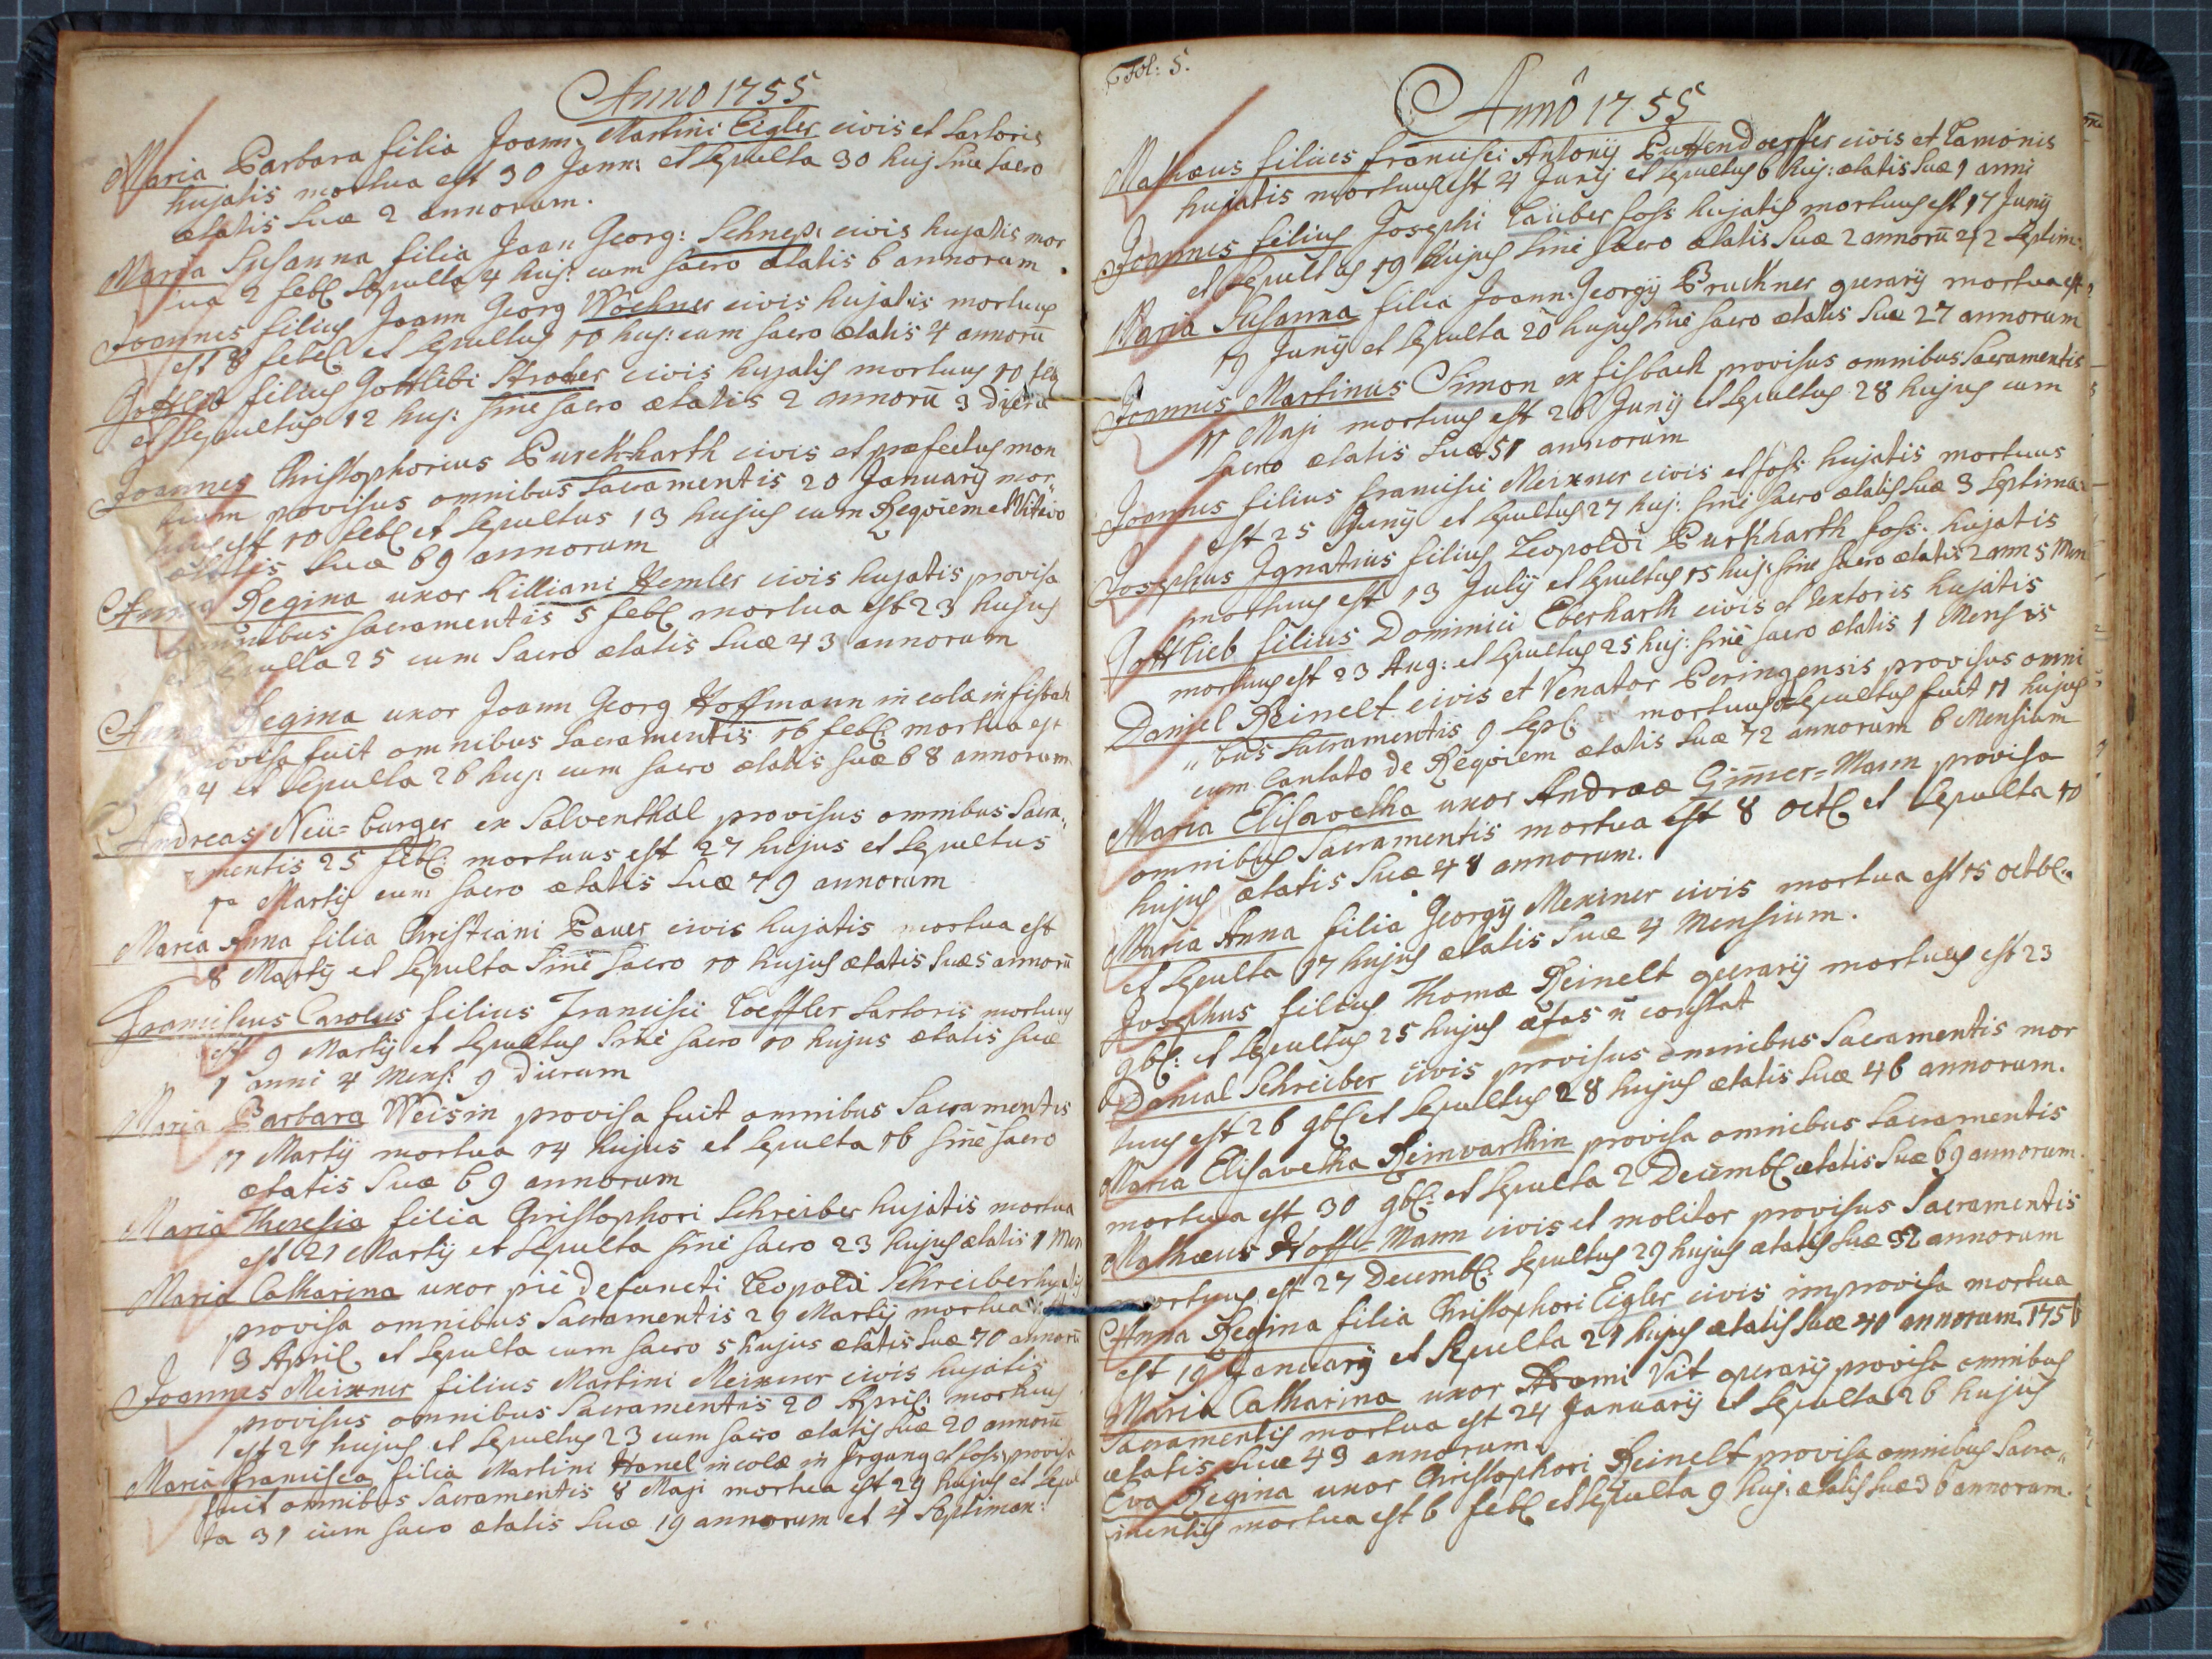 Anno 1755
Maria Barbara filia Joann: Martini Eigler civis et sartoris
hujatis mortua est 30 Jann: et sepulta 30 huj sine sacro
ætatis suæ 2 annorum.
Maria Susanna filia Joan Georg: Schneps: civis hujatis mor
tua 2 febr sepulta 4 huj: cum sacro ætatis 6 annorum
Joannes filius Joann Georg Wochner civis hujatis mortuus
est 8 febr et sepultus 10 huj: cum sacro ætatis 4 annorū
Gottlieb filius Gottlibi civis hujatis mortuus 10 feb
et sepultus 12 huj: sine sacro ætatis 2 annorū 3 dierū
Joannes Christophorius Burck=harth civis et præfectus mon
tium provisus omnibus sacramentis 20 January mor,,
tuus est 10 febr et sepultus 13 hujus cum Reqviem et
ætatis suæ 69 annorum
Anna Regina uxor Killiani Hemler civis hujatis provisa
omnibus sacramentis 5 febr mortua est 23 hujus
et sepulta 25 cum sacro ætatis suæ 43 annorum
Anna Regina uxor Joann Georg Hoffmann incolæ in fisbach
provisa fuit omnibus sacramentis 16 febr: mortua est
24 et sepulta 26 huj: cum sacro ætatis suæ 68 annorum
Andreas Neü=burger ex Salventhal provisus omnibus sacra,,
mentis 25 febr: mortuus est 27 hujus et sepultus
1ª Martij cum sacro ætatis suæ 79 annorum
Maria Anna filia Christiani Bauer civis hujatis mortua est
8 Martij et sepulta sine sacro 10 hujus ætatis suæ 5 annorū
Franciscus Carolus filius Francisci Loeffler sartoris mortuus
est 9 Martij et sepultus sine sacro 10 hujus ætatis suæ
1 anni 4 Mens: 9 dierum
Maria Barbara Weisin provisa fuit omnibus Sacramentis
11 Martij mortua 14 hujus et sepulta 16 sine sacro
ætatis suæ 69 annorum
Maria Theresia filia Christophori Schreiber hujatis mortua
est 21 Martij et sepulta sine sacro 23 hujus ætatis 1 Men
Maria Catharina uxor pie defuncti Leopoldi Schreiber hujatis
provisa omnibus Sacramentis 29 Martij mortua est
3 April et sepulta cum sacro 5 hujus ætatis suæ 70 annorū
Joannes Meixner filius Martini Meixner civis hujatis
provisus omnibus Sacramentis 20 April: mortuus
est 21 hujus et sepultus 23 cum sacro ætatis suæ 20 annorū
Maria Francisca filia Martini Hanel incolæ in Irgang et foss: provisa
fuit omnibus Sacramentis 8 Maji mortua est 29 hujus et sepul
ta 31 cum sacro ætatis suæ 19 annorum et 4 Septiman:
Fol: 5.
Annô 1755
Mathæus filius Francisci Antonij Puttendoerffer civis et Lamonis
hujatis mortuus est 4 Junij et sepultus 6 huj: ætatis suæ 1 anni
Joannes filius Josephi Taüber foss: hujatis mortuus est 17 Junij
et sepultus 19 hujus sine sacro ætatis suæ 2 annorū et 2 septim:
Maria Susanna filia Joann: Georgij Bruckner operarij mortua est
19 Junij et sepulta 20 hujus sine sacro ætatis suæ 27 annorum
Joannes Martinus Simon ex fisbach provisus omnibus Sacramentis
11 Maji mortuus est 26 Junij et sepultus 28 hujus cum
sacro ætatis suæ 51 annorum
Joannes filius Francisci Meixner civis et foss: hujatis mortuus
est 25 Junij et sepultus 27 huj: sine sacro ætatis suæ 3 septima:
Josephus Ignatius filius Leopoldi Burkharth foss: hujatis
mortuus est 13 Julij et sepultus 15 huj: sine sacro ætatis 2 ann 5 Men
Gottlieb filius Dominici Eberharth civis et textoris hujatis
mortuus est 23 Aug: et sepultus 25 huj: sine sacro ætatis 1 Mensis
Daniel Reinelt civis et Venator Peringensis provisus omni
,,bus sacramentis 9 Sept: mortuus et sepultus fuit 11 hujus
cum Cantato de Reqviem ætatis suæ 72 annorum 6 Mensium
Maria Elisavetha uxor Andreæ Gim̄er=Mann provisa
omnibus Sacramentis mortua est 8 octb et sepulta 10
hujus ætatis suæ 48 annorum.
Maria Anna filia Georgij Mexiner civis mortua est 15 octb:
et sepulta 17 hujus ætatis suæ 4 Mensium.
Josephus filius Thomæ Reinelt operarij mortuus est 23
9br: et sepultus 25 hujus ætas ñ constat
Danial Schreiber civis provisus omnibus Sacramentis mor
tuus est 26 9br et sepultus 28 hujus ætatis suæ 46 annorum.
Maria Elisavetha Reinwarthin provisa omnibus sacramentis
mortua est 30 9br: et sepulta 2 Decembr ætatis suæ 69 annorum.
Mathæus Hoff=Mann civis et molitor provisus Sacramentis
mortuus est 27 Decembr: sepultus 29 hujus ætatis suæ 32 annorum
Anna Regina filia Christophori Eigler civis improvisa mortua
est 19 January et sepulta 21 hujus ætatis suæ 40 annorum. 1756
Maria Catharina uxor Vit operarij provisa omnibus
Sacramentis mortua est 24 January et sepulta 26 hujus
ætatis suæ 43 annorum
Eva Regina uxor Christophori Reinelt provisa omnibus Sacra,,
mentis mortua est 6 febr et sepulta 9 huj: ætatis suæ 36 annorum.